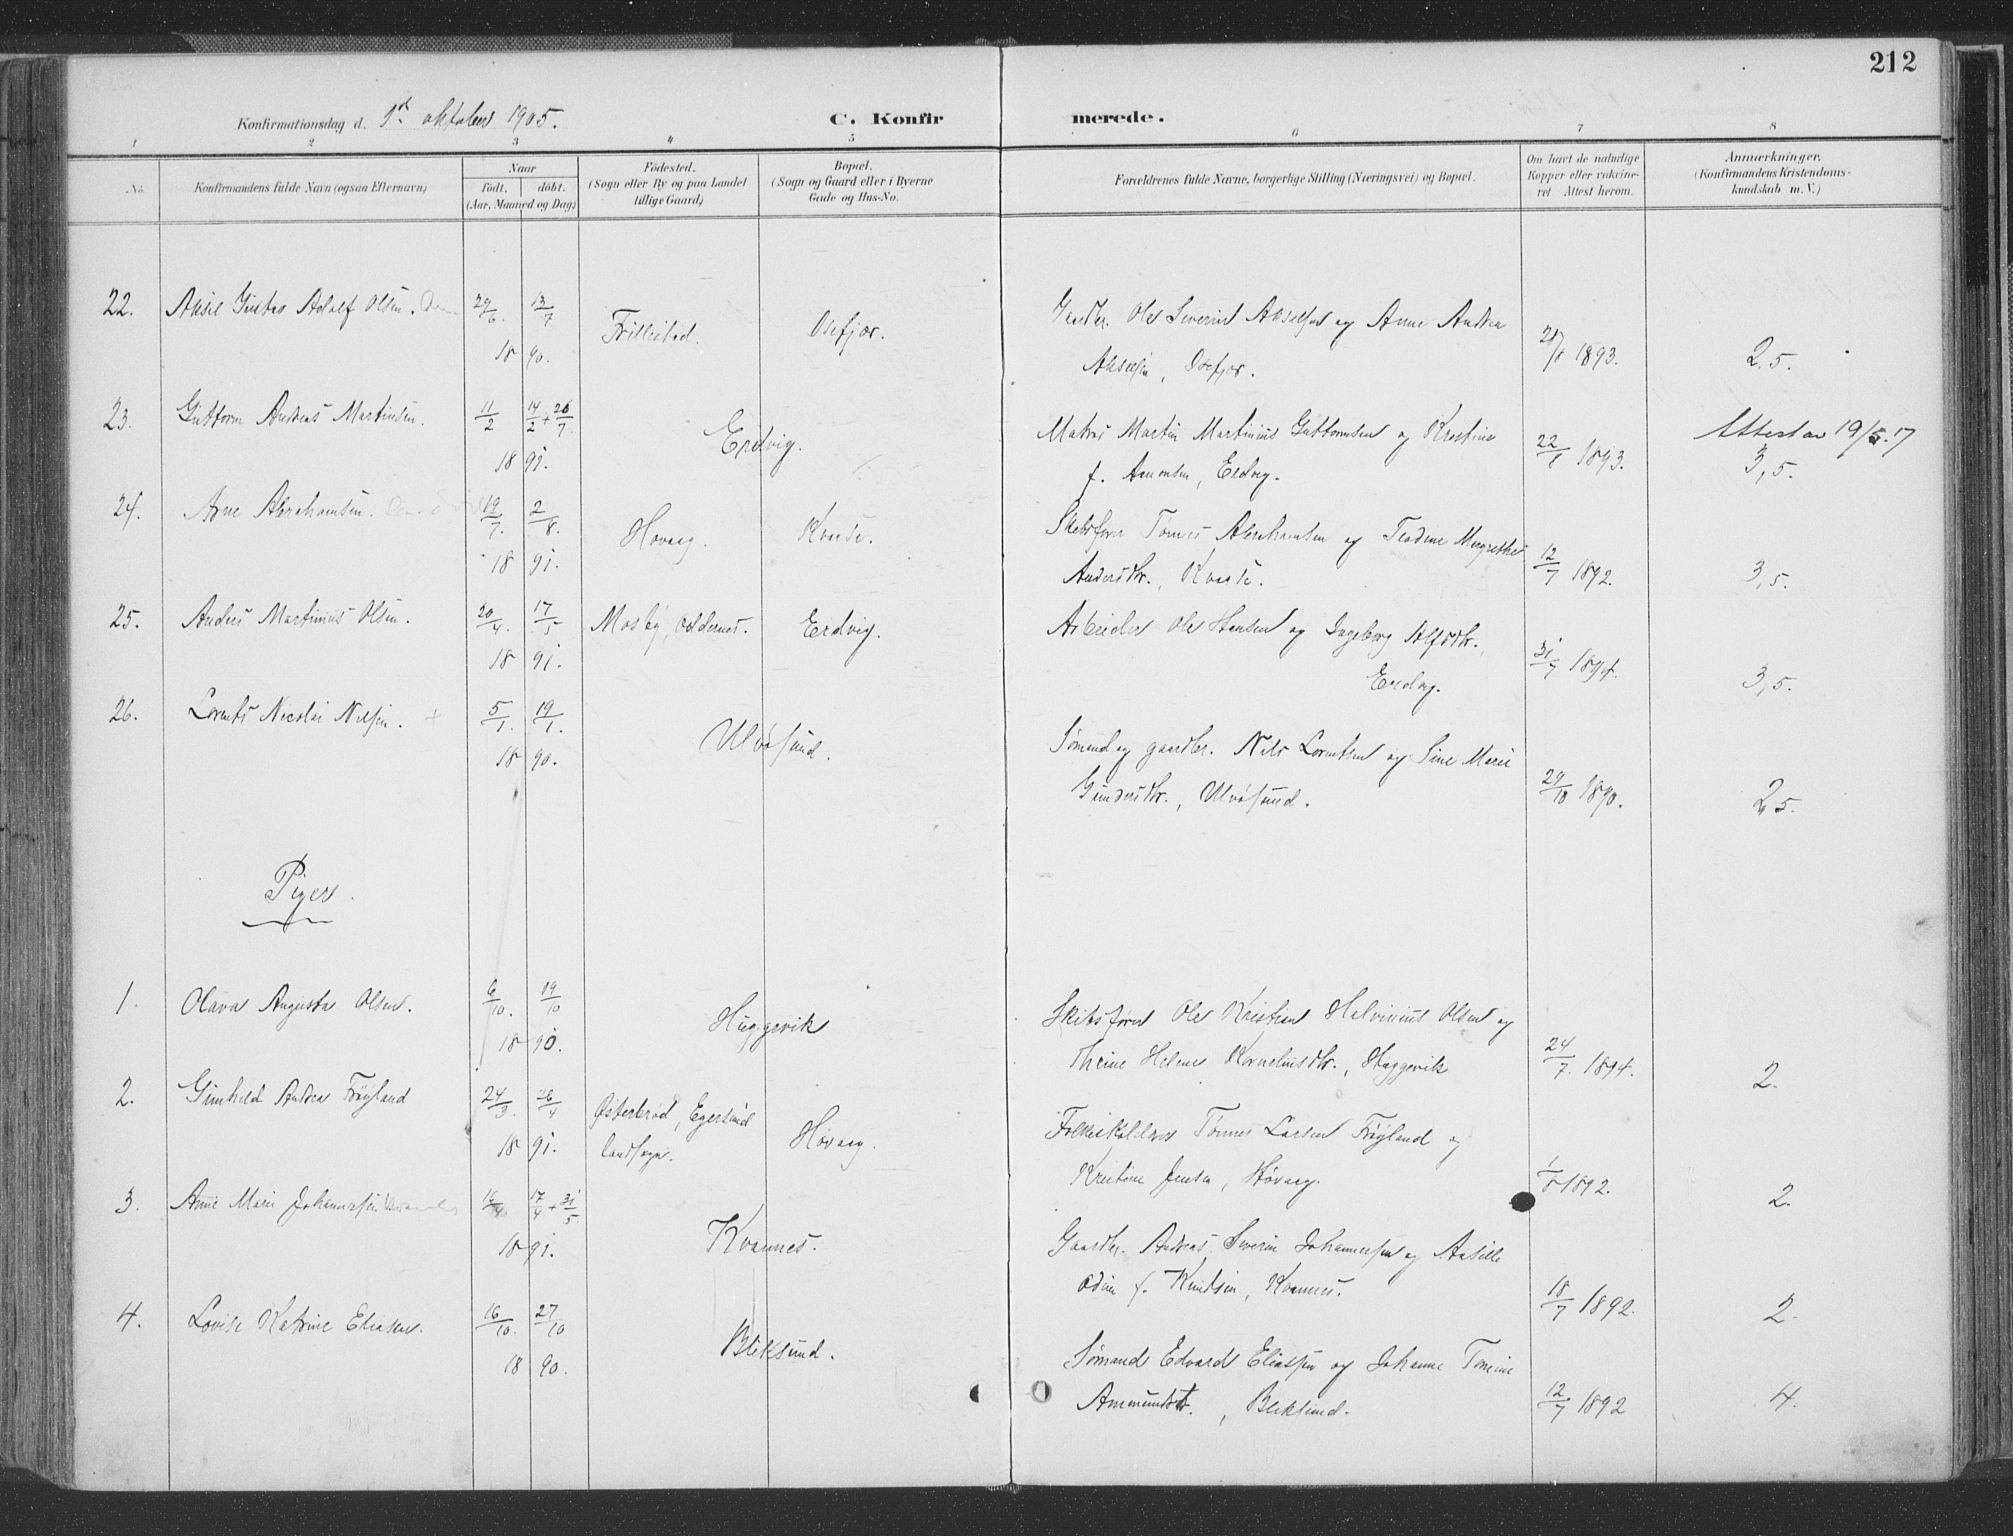 212
Konfirmationsdag d. 1ste oktober 1905.
C. Konfirmerede.
1 2 3 4 5 6 7 8
No.
Konfirmandens fulde Navn (ogsaa Efternavn)
Naar
födt. döbt.
(Aar, Maaned og Dag)
Födested.
(Sogn eller By og paa Landet
tillige Gaard)
Bopæl.
(Sogn og Gaard eller i Byerne
Gade og Hus-No.
Forældrenes fulde Navne, borgerlige Stilling (Næringsvei) og Bopæl.
Om havt de naturlige
Kopper eller vakcine-
ret Attest herom.
Anmærkninger.
(Konfirmandens Kristendoms-
kundskab m. V.)
22. Aksel Gustav Adolf Olsen. 29/6. 13/7 1890. Frillestad. Osefjær. Gaardbr. Ole Severin Akselsen og Anne Andrea
Akselsen, Osefjær. 1893. 2,5.
23. Guttorm Andreas Martinsen. 11/2 14/2 + 26/7. 1891. Erdvig. Matros Martin Martinius Guttormsen og Kristine
f. Aanonsen, Erdvig. 22/8 1893. Attest av 19/5.17
3,5.
24. Arne Abrahamsen. 19/7. 2/8. 1891. Høvaag. Kvaase. Skibsfører Tønnes Abrahamsen og Teodine Margrethe
Andersdtr., Kvaase. 12/7 1892. 3,5.
25. Anders Martinius Olsen. 20/4. 17/5 1891. Mosby, Oddernes. Erdvig. Arbeider Ole Hansen og Ingeborg Alfsdtr.,
Erdvig. 31/7 1894. 3,5.
26. Lorents Nicolai Nilsen. + 5/1. 19/1. 1890. Ulvøsund. Sømand og gaardbr. Nils Lorentsen og Sine Marie
Gundersdtr., Ulvøsund. 29/10 1890. 2,5.
Piger.
1. Olava Augusta Olsen. 6/10. 19/10 1890. Hæggevik Skibsfører Ole Kristian Helvinius Olsen og
Thrine Helene Kornelinsdtr., Hæggevik 24/7. 1894. 2.
2. Gunhild Andrea Frøyland 24/3 26/4 1891. Østerbrød, Egersund
landsogn. Høvaag. Folkeskolelærer Tønnes Larsen Frøyland og
Kristine Jensen, Høvaag. 1/8 1892. 2.
3. Anne Marie Johannessen 16/4 17/4 + 31/5. 1891. Kvannes. Gaardbr. Andreas Severin Johannessen og Aasille
Odine f. Knudsen, Kvannes. 18/7 1892. 2.
4. Lovise Katrine Eliassen. 16/10. 27/10 1890. Bliksund. Sømand Edvard Eliassen og Johanne Tomine
Ammundsdtr., Bliksund. 12/7 1892 4.